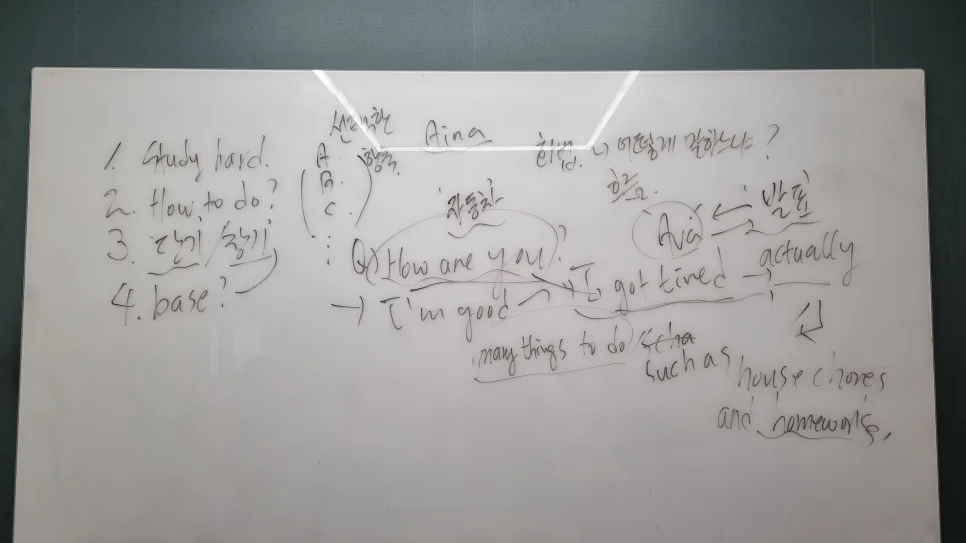 1. Study hard.
2. How to do?
3. 단기/장기
4. base?
선택한
A. 항목.
B.
C.
Aina
어떻게 말하느냐?
흐름.
자동차
Ava
발표
Q) How are you?
I got tired
actually
→ I'm good
many things to do
such as
house chores
and homeworks.